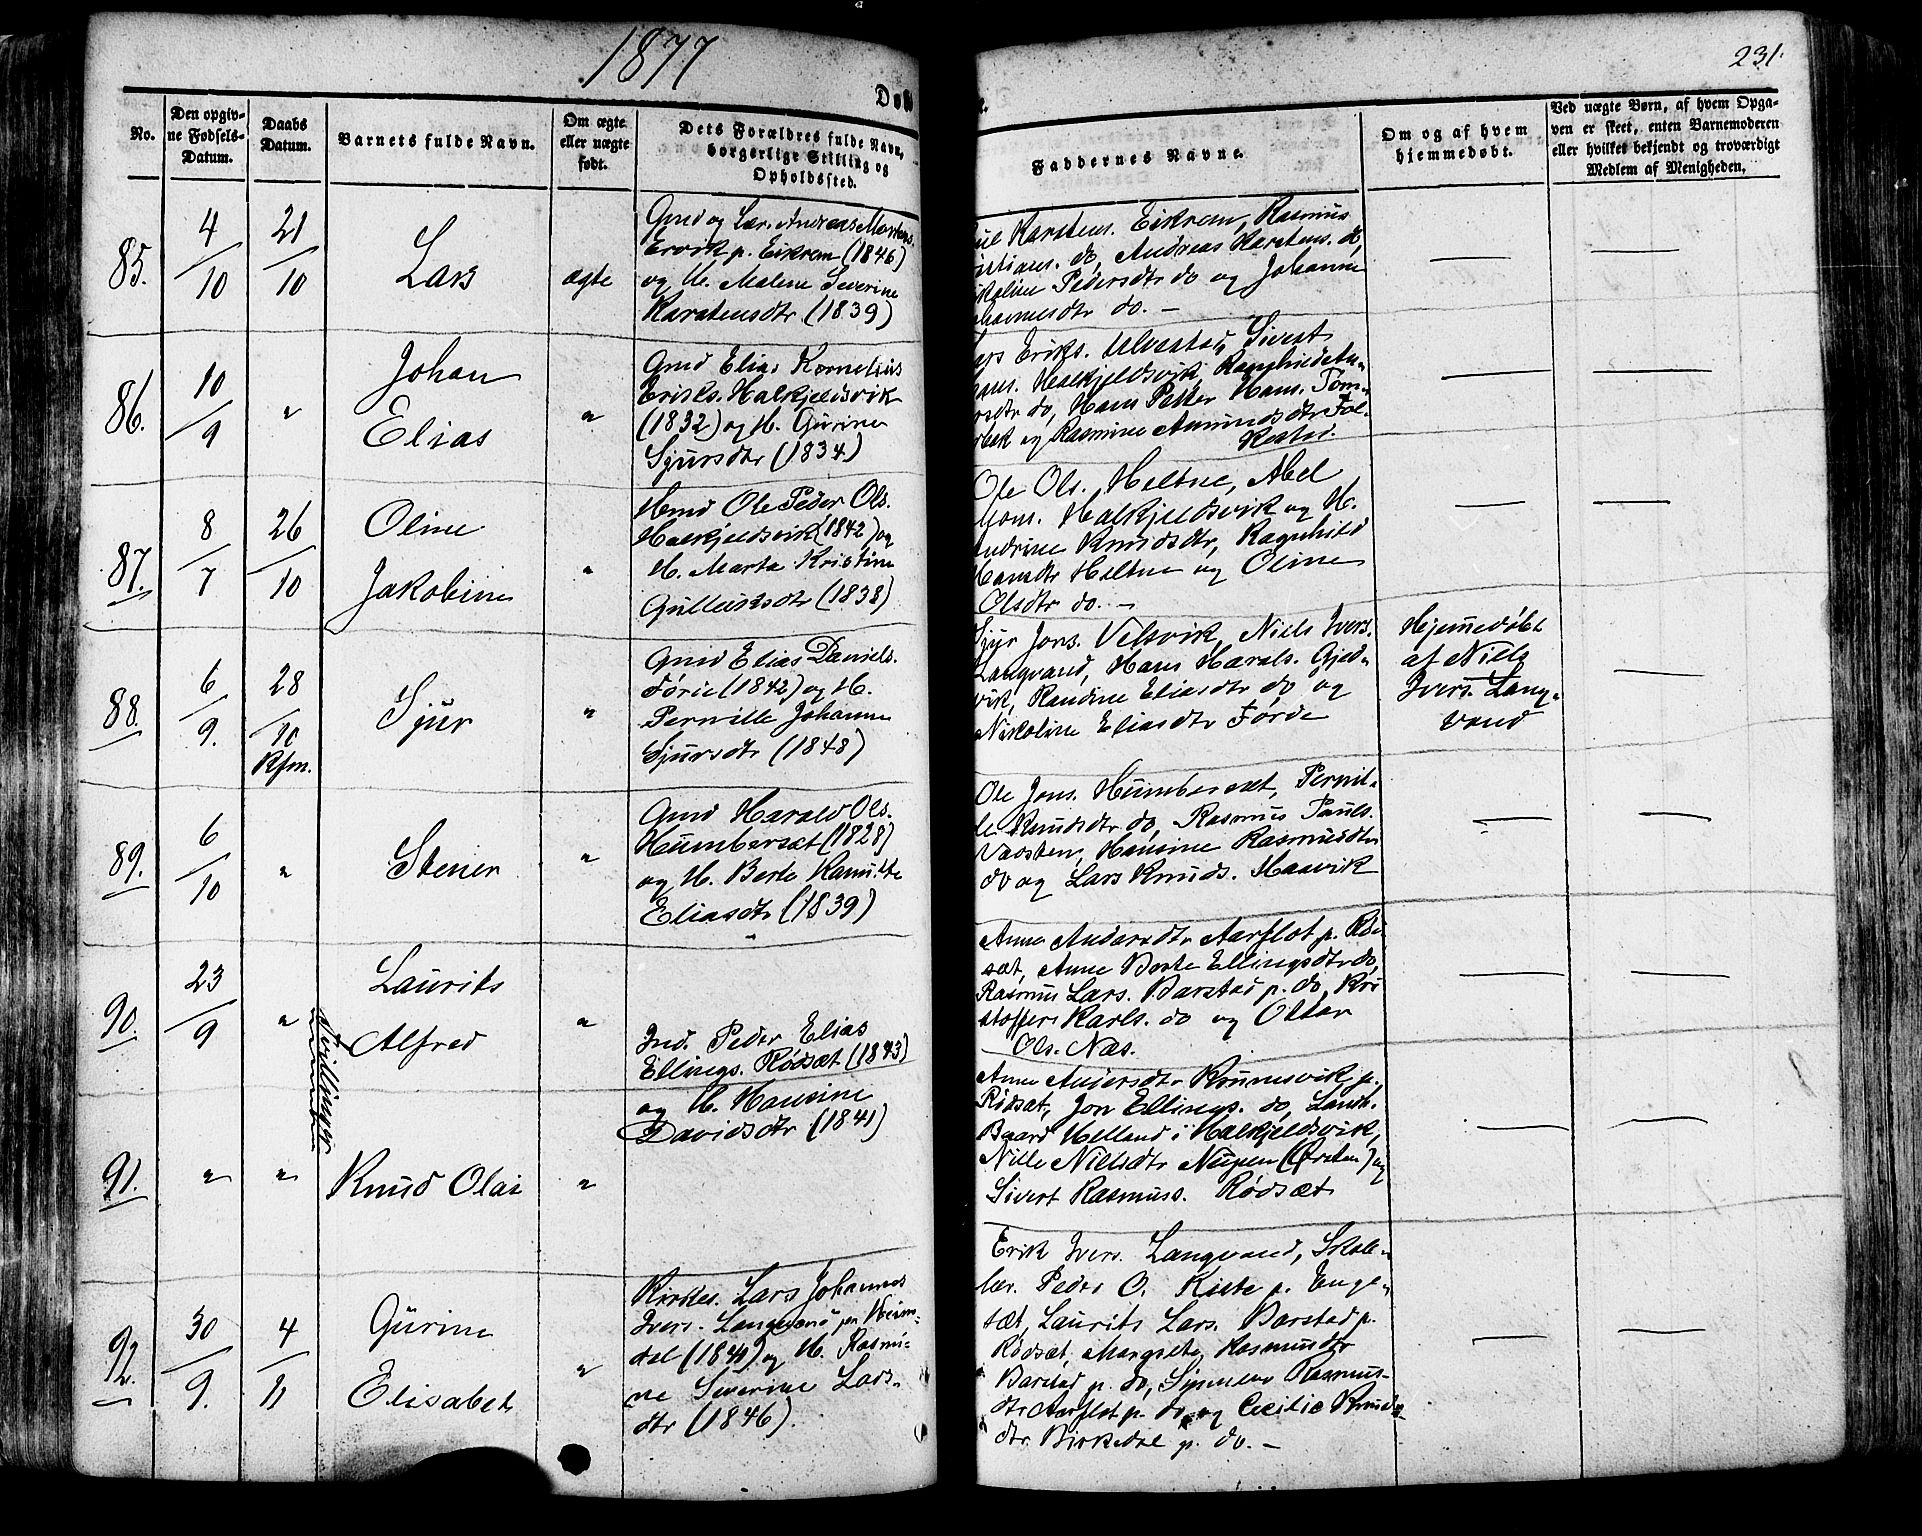 1877
231.
Døb
No.
Den opgiv-
ne Fødsels-
Datum.
Daabs
Datum.
Barnets fulde Navn.
Om ægte
eller uægte
født.
Dets Forældres fulde Navn,
borgerlige Stilling og
Opholdssted.
Faddernes Navne.
Om og af hvem
hjemmedøbt.
Ved uægte Børn, af hvem Opga-
ven er skeet, enten Barnemoderen
eller hvilket bekjendt og troværdigt
Medlem af Menigheden.
85.
4/10
21/10
Lars
ægte
Gmd og Lær. Andreas Mortens.
Ervik p. Eikrem (1846)
og H. Malene Severine
Karstensdtr (1839)
Karstens. Eikrem, Rasmus
do, Andreas Karstens. do,
Pedersdtr do og Johanne
do. —
86.
10/9
"
Johan
Elias
"
Gmd Elias Kornelius
Eriks. Halkjeldsvik
(1832) og H. Gurine
Sjursdtr (1834)
Eriks. Ulvestad, Sivert
Halkjeldsvik, Ragnhild
do, Hans Petter Hans.
og Rasmine Amundsdtr Fol-
kestad.
87.
8/7
26/10
Oline
Jakobine
"
Hmd Ole Peder Ols.
Halkjeldsvik (1842) og
H. Marta Kristine
Gulleiksdtr (1838)
Ole Ols. Heltne, Abel
Halkjeldsvik og H.
Knudsdtr, Ragnhild
Hansdtr Heltne og Oline
Olsdtr do. —
88.
6/9.
28/10
Kfm.
Sjur
"
Gmd Elias Daniels.
Førde (1842) og H.
Pernille Johanne
Sjursdtr (1848)
Sjur Jons. Velsvik, Niels Ivers.
Langvand, Hans Harals. Gjed-
vik, Randine Eliasdtr do og
Nikoline Eliasdtr Førde
Hjemmedøbt
af Niels
Ivers. Lang-
vand
89.
6/10
"
Stener
"
Gmd Harald Ols.
Humberset (1828)
og H. Berte
Eliasdtr (1839)
Ole Jons. Humberset, Pernil-
le Knudsdtr do, Rasmus Pauls.
Vassten, Hansine Rasmusdtr
do og Lars Knuds. Haavik
90.
23/9
"
Tvillinger
Laurits
Alfred
"
Ind. Peder Elias
Ellings. Rødsæt (1843)
og H. Hansine
Davidsdtr (1841)
Anne Andersdtr Aarflot p. Rød-
sæt, Anne Berte Ellingsdtr do,
Rasmus Lars. Barstad p. do, Kri-
stoffer Karls. do og Oltar
Ols. Næs.
91.
"
"
Knud Olai
"
Anne Andersdtr Krumsvik p.
Rødsæt, Jon Ellings. do, Landh.
Baard Helland i Halkjeldsvik,
Nille Nielsdtr Nupen (Ørsten) og
Sivert Rasmuss. Rødsæt
92.
30/9.
4/11
Gurine
Elisabet
"
Kirkes. Lars Johannes
Ivers. Langvand pa Heim-
dal (1841) og H. Rasmi-
ne Severine Lars-
dtr (1846).
Erik Ivers. Langvand, Skole-
lær. Peder O. Kile p. Enge-
sæt, Laurits Lars. Barstad p.
Rødsæt, Margrete Rasmusdtr
Barstad p. do, Synneva Rasmus-
dtr Aarflot p. do og Cecilie Knuds-
dtr Birkedal p. do. —